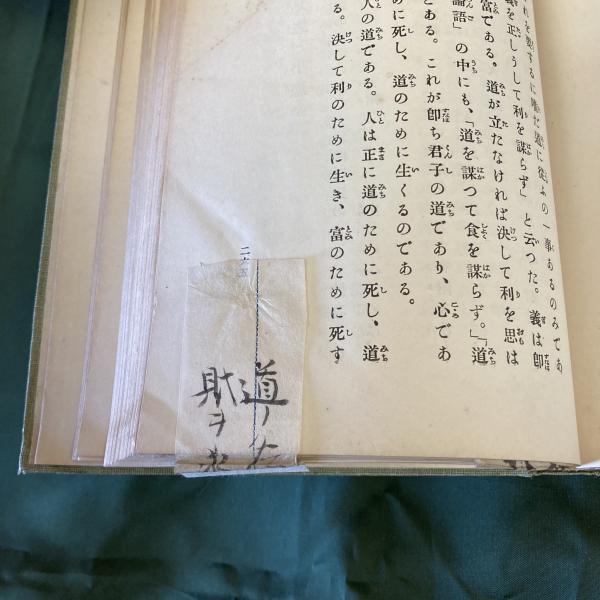 れを要するに唯だ道に從ふの一事あるのみであ
義を正しうして利を謀らず」と云つた。義は卽
富である。道が立たなければ決して利を思は
論語」の中にも、「道を謀つて食を謀らず。」「道
とある。これが卽ち君子の道であり、心であ
めに死し、道のために生くるのである。
人の道である。人は正に道のために死し、道
る。決して利のために生き、富のために死す
道ノ
財ヲ